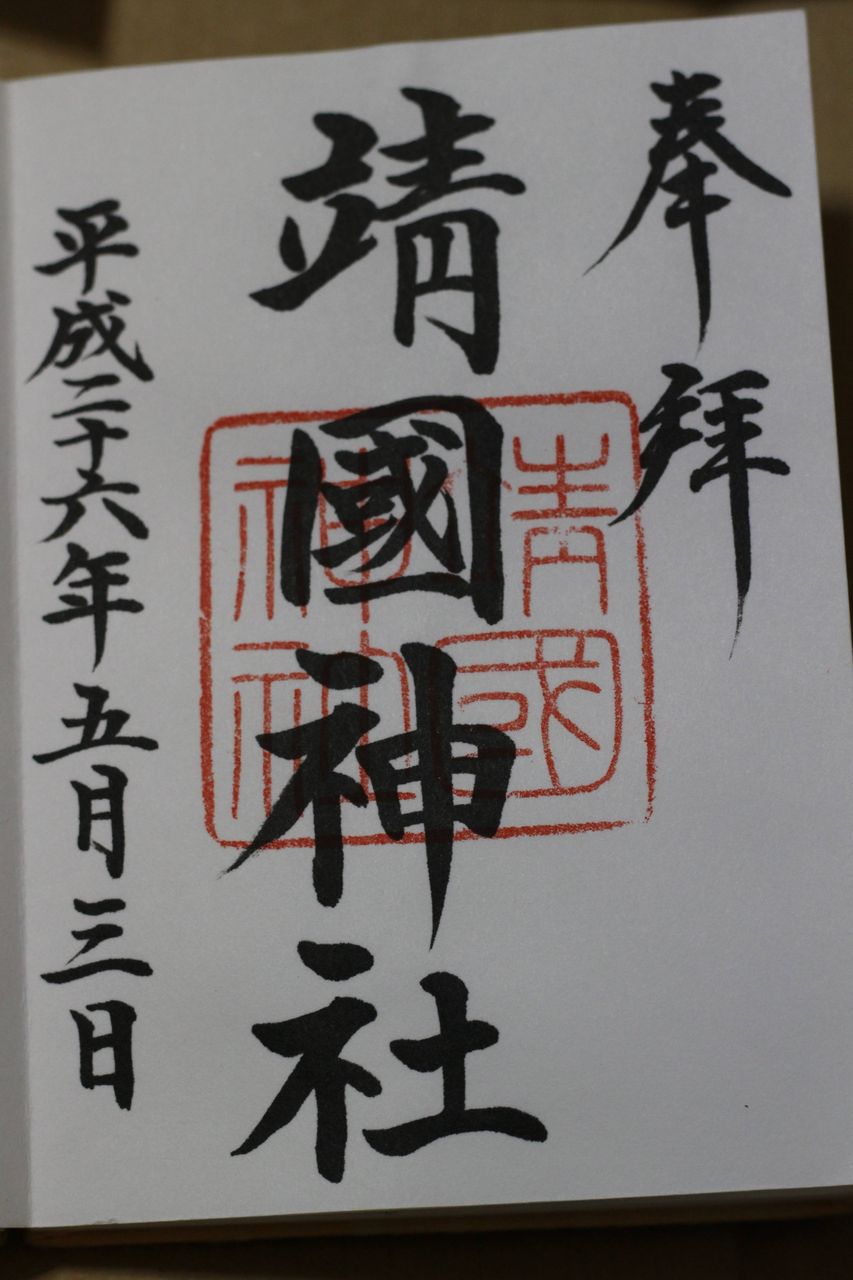 奉拜
靖國神社
靖國
神社
平成二十六年五月三日